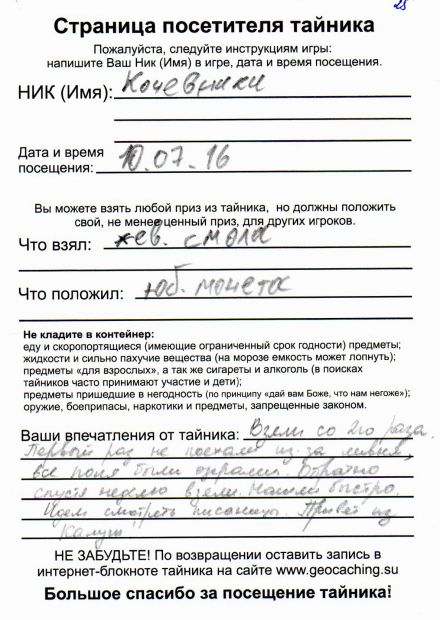 25
Страница посетителя тайника
Пожалуйста, следуйте инструкциям игры:
напишите Ваш Ник (Имя) в игре, дата и время посещения.
НИК (Имя): Кочевники
Дата и время
посещения: 10.07.16
Вы можете взять любой приз из тайника, но должны положить
свой, не менее ценный приз, для других игроков.
Что взял: жев. смола
Что положил: юб. монета
Не кладите в контейнер:
еду и скоропортящиеся (имеющие ограниченный срок годности) предметы;
жидкости и сильно пахучие вещества (на морозе емкость может лопнуть);
предметы «для взрослых», а так же сигареты и алкоголь (в поисках
тайников часто принимают участие и дети);
предметы пришедшие в негодность (по принципу «дай вам Боже, что нам негоже»);
оружие, боеприпасы, наркотики и предметы, запрещенные законом.
Ваши впечатления от тайника: Взяли со 2го раза.
Первый раз не поехали из-за ливня,
все поля были озерами. Обратно
спустя неделю взяли. Нашли быстро.
Идем смотреть писаницу. Привет из
НЕ ЗАБУДЬТЕ! По возвращении оставить запись в
интернет-блокноте тайника на сайте www.geocaching.su
Большое спасибо за посещение тайника!